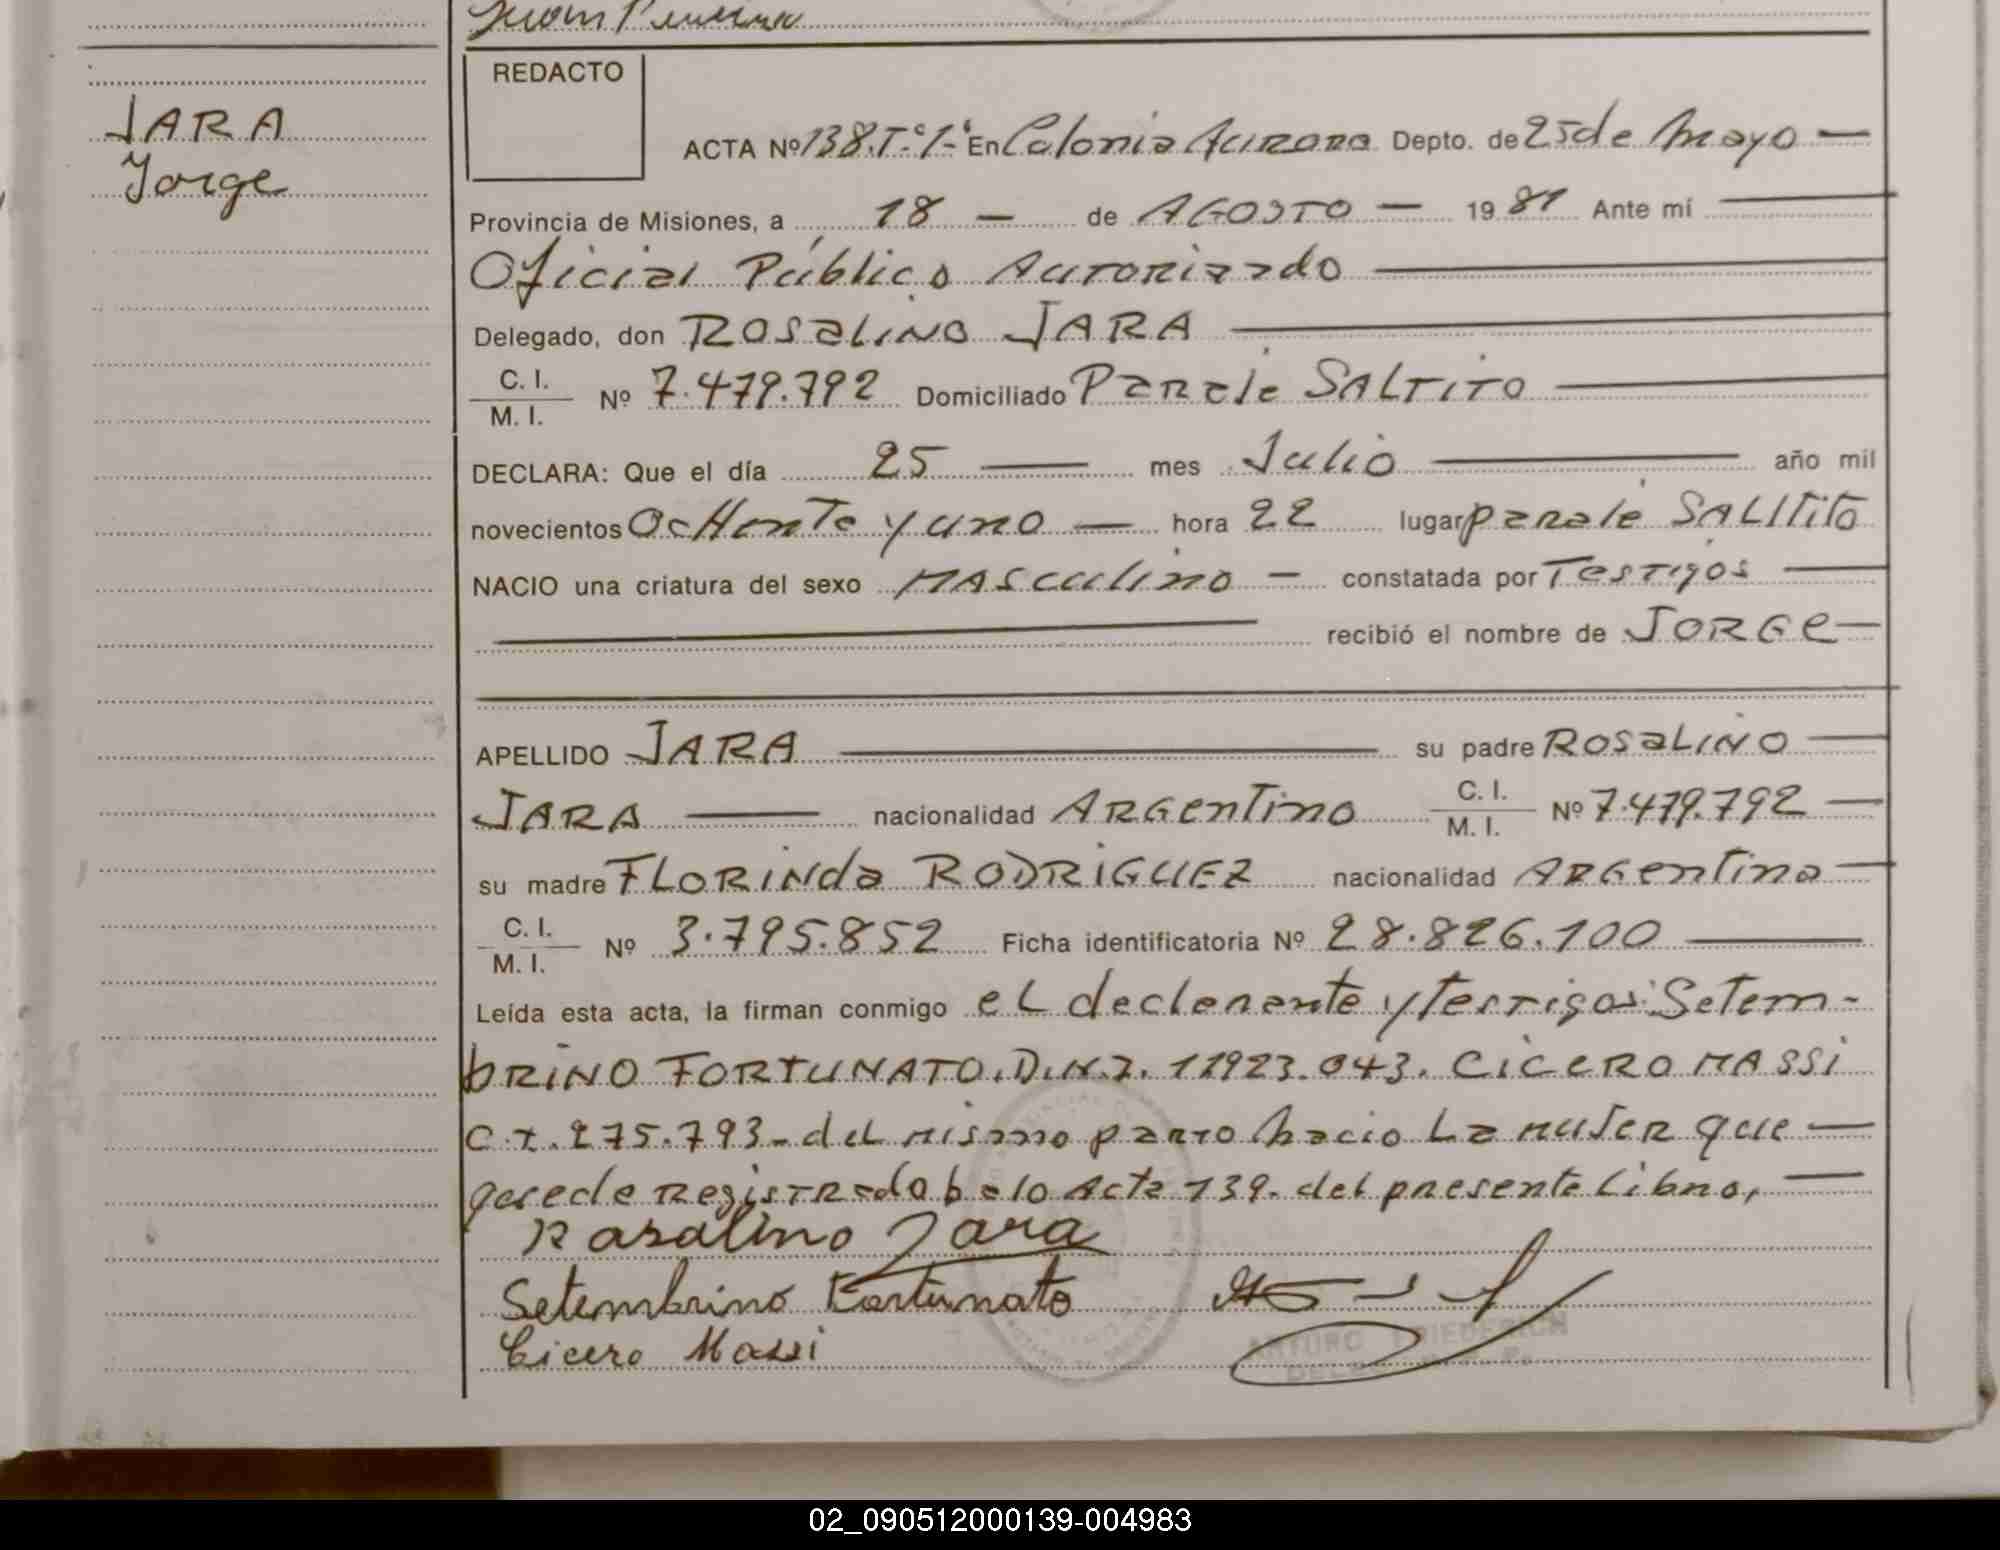 Juan Pereira
REDACTO
JARA
Jorge
ACTA Nº 138.Tº1º En Colonia Aurora Depto. de 25 de Mayo —
Provincia de Misiones, a 18 — de AGOSTO — 19 81 Ante mí
Oficial Público Autorizado
Delegado, don ROSALINO JARA
C. I.
M. I. Nº 7.479.792 Domiciliado Paraje SALTITO
DECLARA: Que el día 25 — mes Julio — año mil
novecientos OcHenTa y uno — hora 22 lugar paraje SALTITO
NACIO una criatura del sexo MASculino — constatada por Testigos
recibió el nombre de JORGE —
APELLIDO JARA — su padre ROSALINO —
JARA — nacionalidad ARGENTINO C. I.
M. I. Nº 7.479.792 —
su madre FLORINDA RODRIGUEZ nacionalidad ARGENTINA —
C. I.
M. I. Nº 3.795.852 Ficha identificatoria Nº 28.826.100 —
Leída esta acta, la firman conmigo el declarante y testigos: Setem-
BRINO FORTUNATO. D.N.I. 11923.043. CICERO MASSI
C.I. 275.793- del mismo parto nacio La mujer que —
quede registrada bajo Acta 139. del presente libro, —
Rosalino Jara
Setembrino Fortunato
Cicero Massi
ARTURO FRIEDERICH
02_090512000139-004983